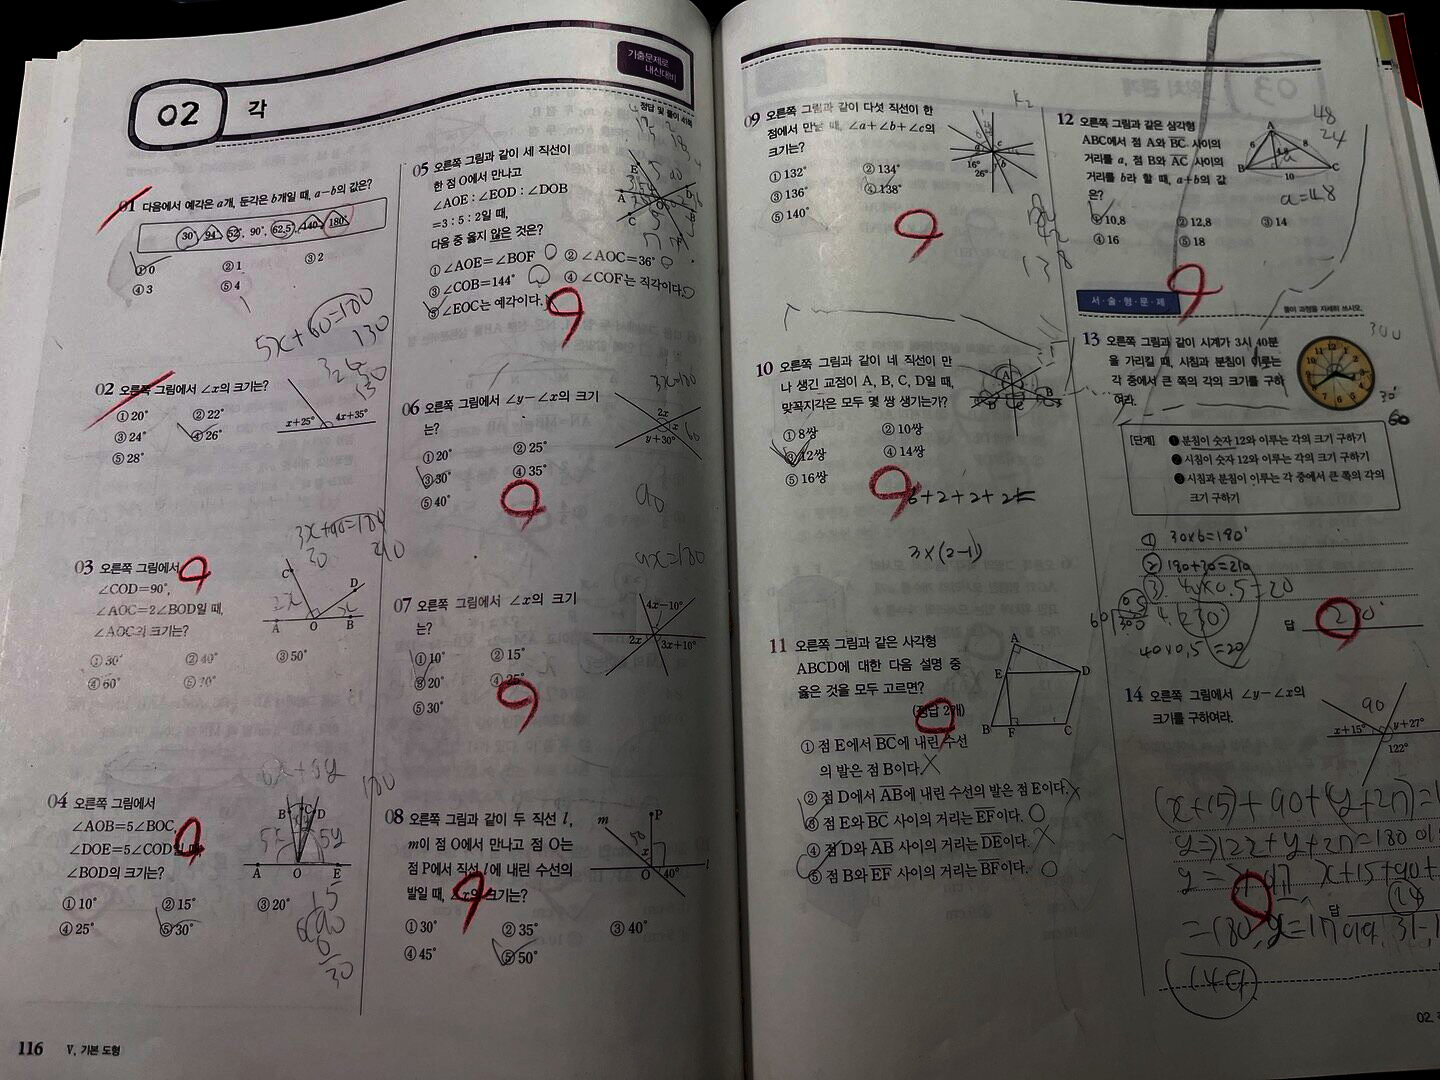 02 각
기출문제로
내신대비
정답 및 풀이 41쪽
01 다음에서 예각은 a개, 둔각은 b개일 때, a-b의 값은?
30°, 94°, 52°, 90°, 62.5°, 140°, 180°
① 0 ② 1 ③ 2
④ 3 ⑤ 4
5x+60=180
130
02 오른쪽 그림에서 ∠x의 크기는?
① 20° ② 22°
③ 24° ④ 26°
⑤ 28°
x+25° 4x+35°
3x+90=180
30
03 오른쪽 그림에서
∠COD=90°,
∠AOC=2∠BOD일 때,
∠AOC의 크기는?
① 30° ② 40° ③ 50°
④ 60° ⑤ 70°
C D A O B
2x x
6x+6y 180
04 오른쪽 그림에서
∠AOB=5∠BOC,
∠DOE=5∠COD일 때,
∠BOD의 크기는?
① 10° ② 15° ③ 20°
④ 25° ⑤ 30°
B C D A O E
5y
15
30
05 오른쪽 그림과 같이 세 직선이
한 점 O에서 만나고
∠AOE : ∠EOD : ∠DOB
=3 : 5 : 2일 때,
다음 중 옳지 않은 것은?
① ∠AOE=∠BOF ② ∠AOC=36°
③ ∠COB=144° ④ ∠COF는 직각이다.
⑤ ∠EOC는 예각이다.
E A C D B F
06 오른쪽 그림에서 ∠y-∠x의 크기
는?
① 20° ② 25°
③ 30° ④ 35°
⑤ 40°
3x=180
2x x y+30°
60
90
9x=180
07 오른쪽 그림에서 ∠x의 크기
는?
① 10° ② 15°
③ 20° ④ 25°
⑤ 30°
4x-10° 2x 3x+10°
08 오른쪽 그림과 같이 두 직선 l,
m이 점 O에서 만나고 점 O는
점 P에서 직선 l에 내린 수선의
발일 때, ∠x의 크기는?
① 30° ② 35° ③ 40°
④ 45° ⑤ 50°
m P x O 40° l
50
116 V. 기본 도형
09 오른쪽 그림과 같이 다섯 직선이 한
점에서 만날 때, ∠a+∠b+∠c의
크기는?
① 132° ② 134°
③ 136° ④ 138°
⑤ 140°
16° 26° a b c
138
10 오른쪽 그림과 같이 네 직선이 만
나 생긴 교점이 A, B, C, D일 때,
맞꼭지각은 모두 몇 쌍 생기는가?
① 8쌍 ② 10쌍
③ 12쌍 ④ 14쌍
⑤ 16쌍
6+2+2+2=
3×(2-1)
11 오른쪽 그림과 같은 사각형
ABCD에 대한 다음 설명 중
옳은 것을 모두 고르면?
(정답 2개)
① 점 E에서 BC에 내린 수선
의 발은 점 B이다.
② 점 D에서 AB에 내린 수선의 발은 점 E이다.
③ 점 E와 BC 사이의 거리는 EF이다.
④ 점 D와 AB 사이의 거리는 DE이다.
⑤ 점 B와 EF 사이의 거리는 BF이다.
A E D B F C
12 오른쪽 그림과 같은 삼각형
ABC에서 점 A와 BC 사이의
거리를 a, 점 B와 AC 사이의
거리를 b라 할 때, a+b의 값
은?
① 10.8 ② 12.8 ③ 14
④ 16 ⑤ 18
A 6 8 B 10 C
48
24
a=4.8
서·술·형·문·제
풀이 과정을 자세히 쓰시오.
13 오른쪽 그림과 같이 시계가 3시 40분
을 가리킬 때, 시침과 분침이 이루는
각 중에서 큰 쪽의 각의 크기를 구하
여라.
[단계] ❶ 분침이 숫자 12와 이루는 각의 크기 구하기
❷ 시침이 숫자 12와 이루는 각의 크기 구하기
❸ 시침과 분침이 이루는 각 중에서 큰 쪽의 각의
크기 구하기
① 30×6=180°
② 180+30=210
③ 40×0.5=20
230
40×0.5=20
답
14 오른쪽 그림에서 ∠y-∠x의
크기를 구하여라.
90 x+15° y+27° 122°
(x+15)+90+(y+27)=1
y=)122+y+27=180
y=31
x+15+90+
답
=180, x=17
02. 각